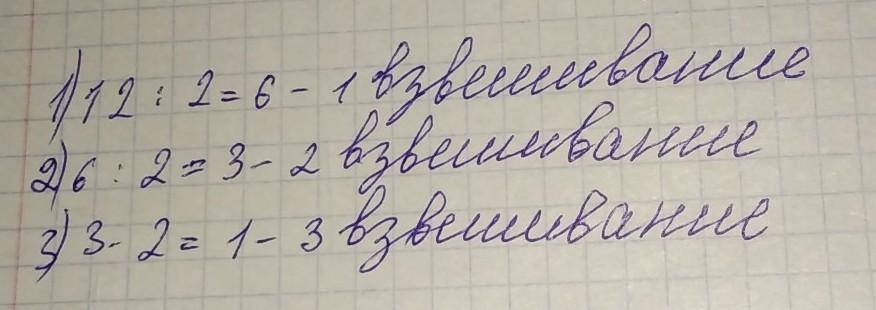 1) 12 : 2 = 6 - 1 взвешивание
2) 6 : 2 = 3 - 2 взвешивание
3) 3 - 2 = 1 - 3 взвешивание